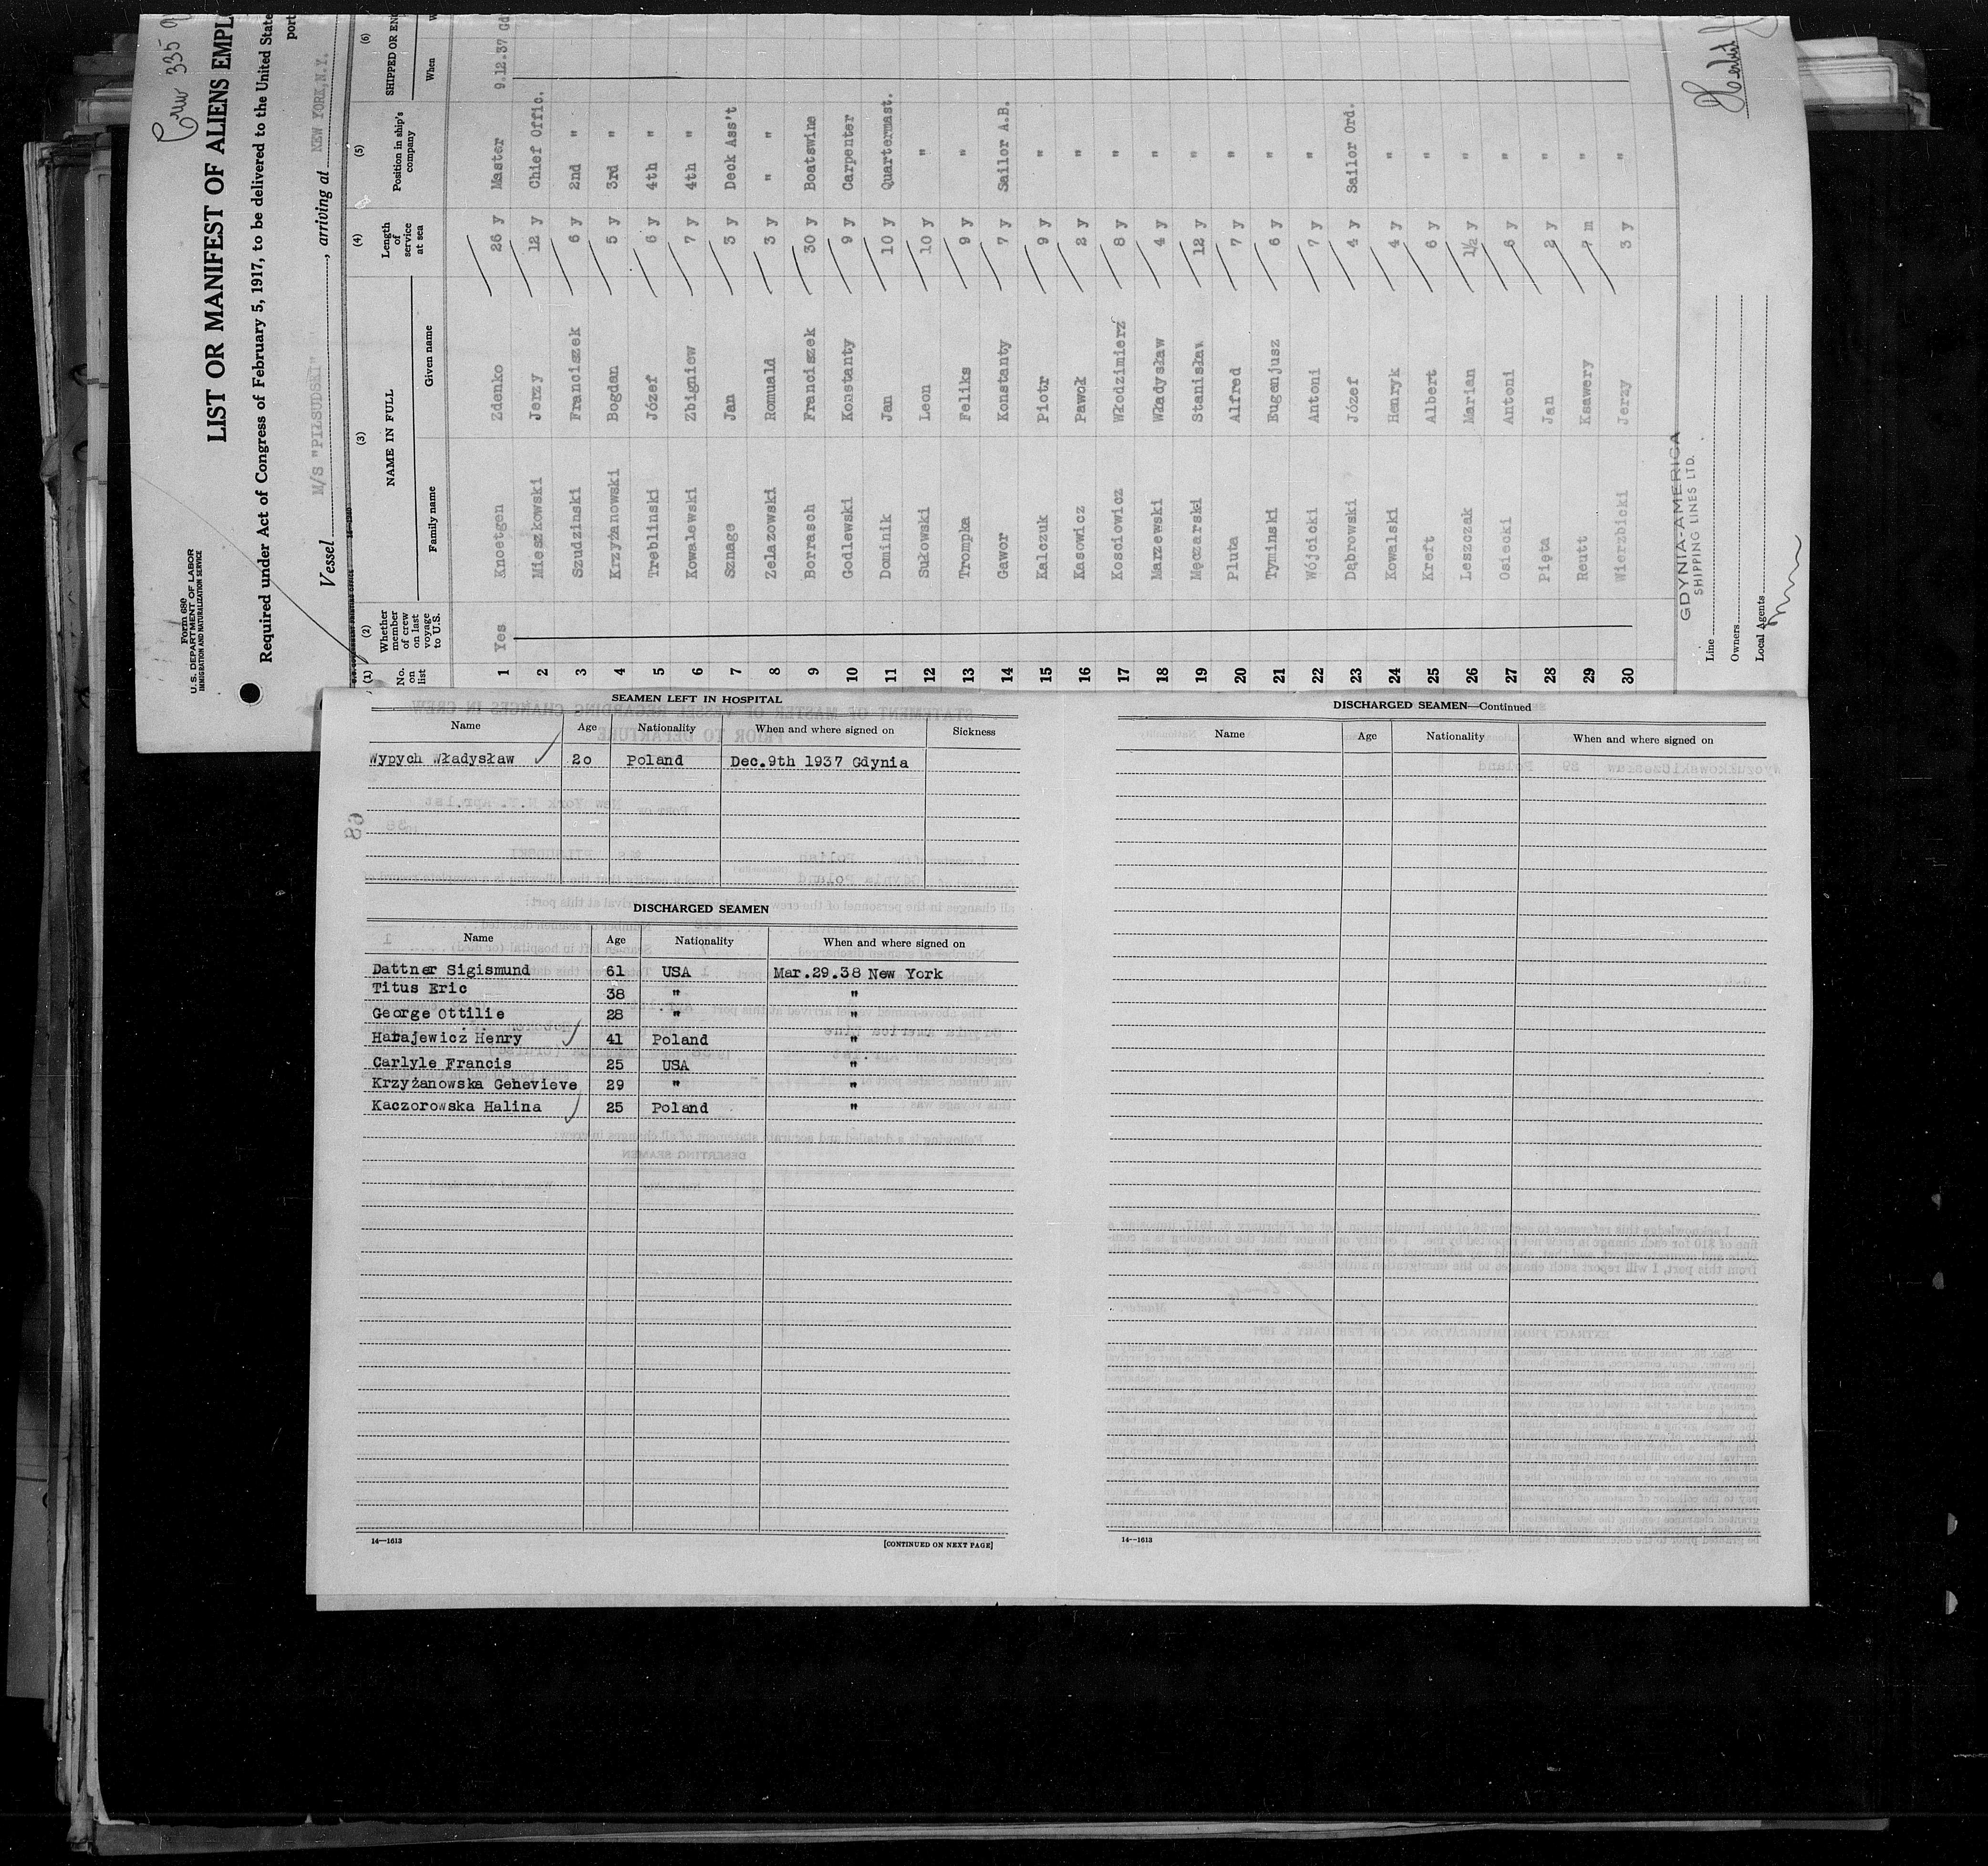 Crew 335
Form 680
U. S. DEPARTMENT OF LABOR
IMMIGRATION AND NATURALIZATION SERVICE
LIST OR MANIFEST OF ALIENS EMPL
Required under Act of Congress of February 5, 1917, to be delivered to the United State
port
Vessel M/S "PIŁSUDSKI", arriving at NEW YORK, N.Y.
(1) (2) (3) (4) (5) (6)
No. on list
Whether member of crew on last voyage to U.S.
NAME IN FULL
Family name Given name
Length of service at sea
Position in ship's company
SHIPPED OR EN
When
1 Yes Knoetgen Zdenko 26 y Master 9.12.37 Gd
2 Mieszkowski Jerzy 12 y Chief Offic.
3 Szudzinski Franciszek 6 y 2nd "
4 Krzyżanowski Bogdan 5 y 3rd "
5 Treblinski Józef 6 y 4th "
6 Kowalewski Zbigniew 7 y 4th "
7 Sznage Jan 3 y Deck Ass't
8 Zelazowski Romuald 3 y " "
9 Bonrasch Franciszek 30 y Boatswine
10 Godlewski Konstanty 9 y Carpenter
11 Dominik Jan 10 y Quartermast.
12 Sułowski Leon 10 y "
13 Trompka Feliks 9 y "
14 Gawor Konstanty 7 y Sailor A.B.
15 Kalczuk Piotr 9 y "
16 Kasowicz Pawoł 2 y "
17 Kosciowicz Włodzimierz 8 y "
18 Marzewski Władysław 4 y "
19 Męczarski Stanisław 12 y "
20 Pluta Alfred 7 y "
21 Tyminski Eugenjusz 6 y "
22 Wójcicki Antoni 7 y "
23 Dąbrowski Józef 4 y Sailor Ord.
24 Kowalski Henryk 4 y "
25 Kreft Albert 6 y "
26 Leszczak Marian 1½ y "
27 Osiecki Antoni 6 y "
28 Pięta Jan 2 y "
29 Reutt Ksawery 7 m "
30 Wierzbicki Jerzy 3 y "
GDYNIA-AMERICA
SHIPPING LINES LTD.
Line
Owners
Local Agents
SEAMEN LEFT IN HOSPITAL
Name Age Nationality When and where signed on Sickness
Wypych Władysław 20 Poland Dec.9th 1937 Gdynia
68
DISCHARGED SEAMEN
Name Age Nationality When and where signed on
Dattner Sigismund 61 USA Mar.29.38 New York
Titus Eric 38 " "
George Ottilie 28 " "
Harajewicz Henry 41 Poland "
Carlyle Francis 25 USA "
Krzyżanowska Genevieve 29 " "
Kaczorowska Halina 25 Poland "
14—1613
[CONTINUED ON NEXT PAGE]
DISCHARGED SEAMEN—Continued
Name Age Nationality When and where signed on
14—1613